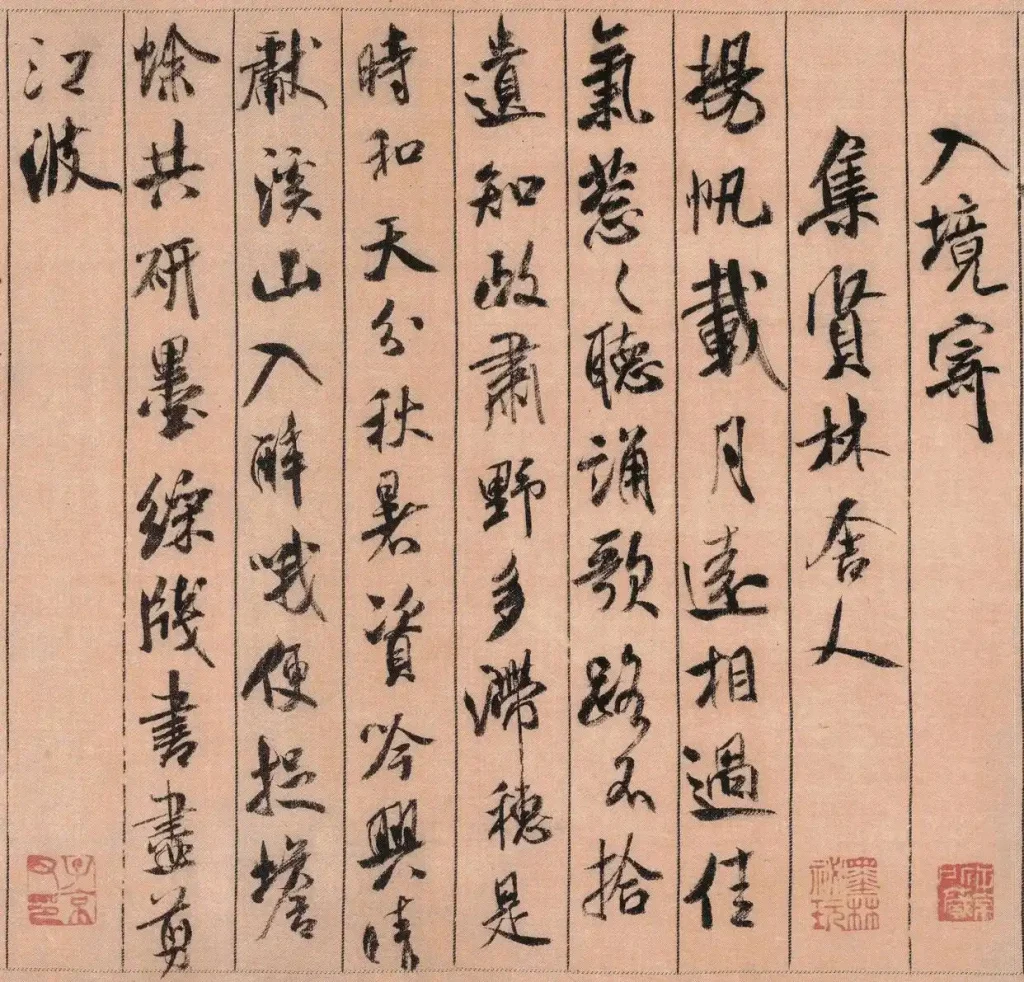 入境寄
集賢林舍人
揚帆載月遠相過佳
氣葱〻聽誦歌路不拾
遺知政肅野多滯穗是
時和天分秋暑資吟興晴
獻溪山入醉哦便捉蟾
蜍共研墨綵牋書盡剪
江波